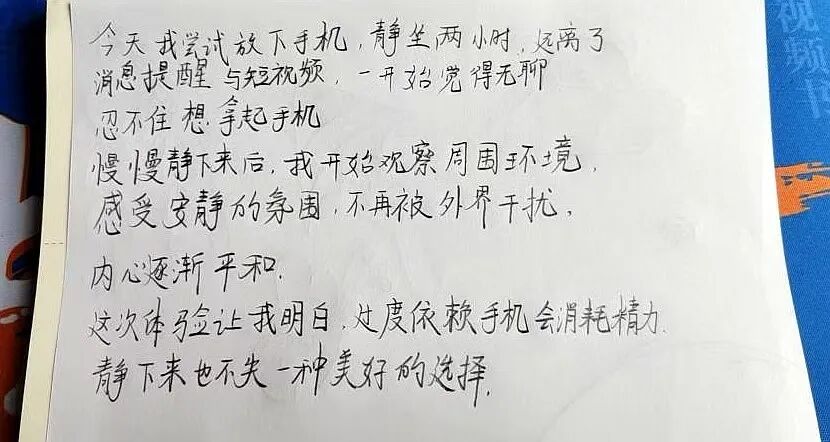 今天我尝试放下手机，静坐两小时，远离了
消息提醒与短视频，一开始觉得无聊
忍不住想拿起手机
慢慢静下来后，我开始观察周围环境，
感受安静的氛围，不再被外界干扰，
内心逐渐平和.
这次体验让我明白，过度依赖手机会消耗精力.
静下来也不失一种美好的选择.
视频书